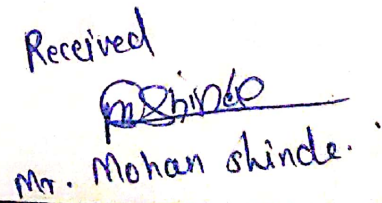 Received
mShinde
Mr. Mohan Shinde.